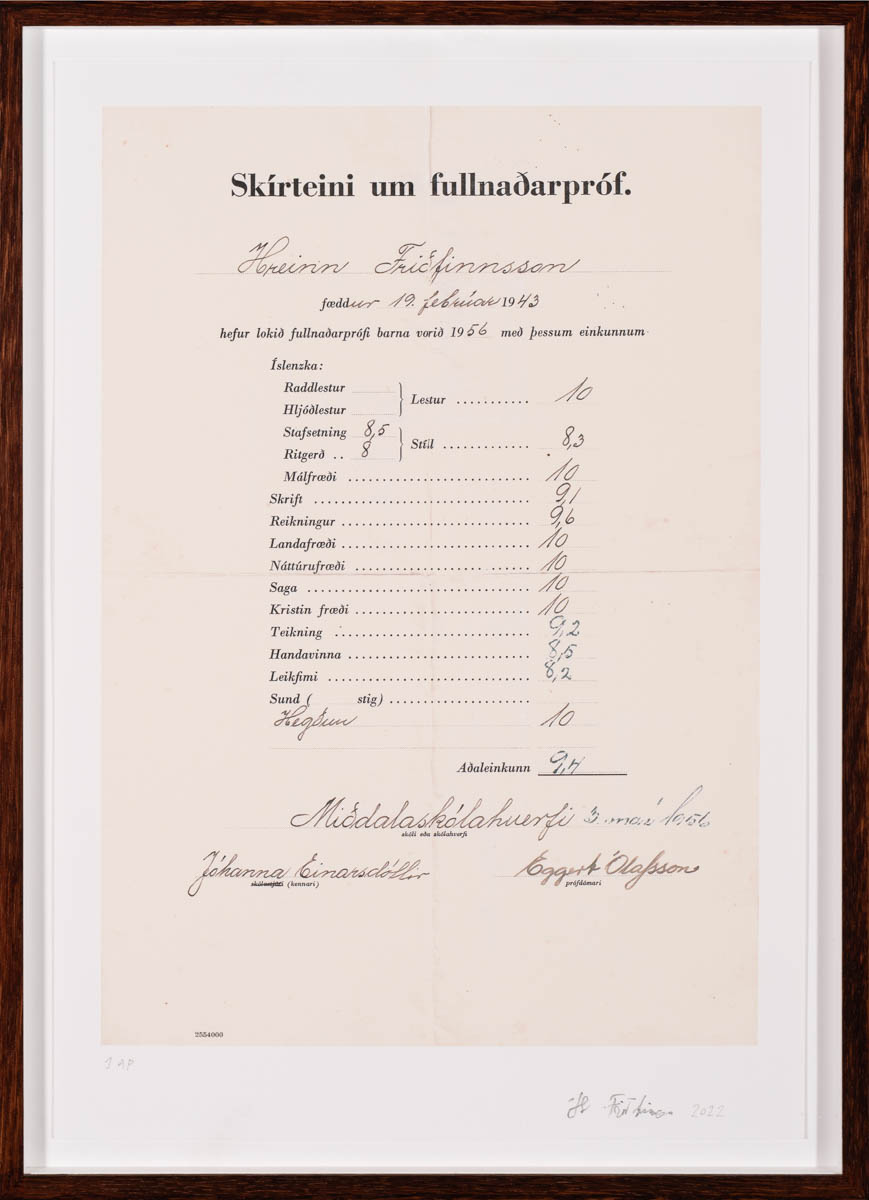 Skírteini um fullnaðarpróf.
Hreinn Friðfinnsson
fæddur 19. febrúar 1943
hefur lokið fullnaðarprófi barna vorið 1956 með þessum einkunnum
Íslenzka:
Raddlestur
Hljóðlestur
Lestur ........... 10
Stafsetning 8,5
Ritgerð .. 8
Stíll ............. 8,3
Málfræði ........................... 10
Skrift ................................ 9,1
Reikningur ............................ 9,6
Landafræði ............................ 10
Náttúrufræði .......................... 10
Saga ................................. 10
Kristin fræði .......................... 10
Teikning ............................. 9,2
Handavinna ........................... 8,5
Leikfimi .............................. 8,2
Sund ( stig) .....................
Hegðun 10
Aðaleinkunn 9,4
Miðdalaskólahverfi 3. maí 1956
skóli eða skólahverfi
Jóhanna Einarsdóttir Eggert Ólafsson
skólastjóri (kennari) prófdómari
2554000
1 AP
2022